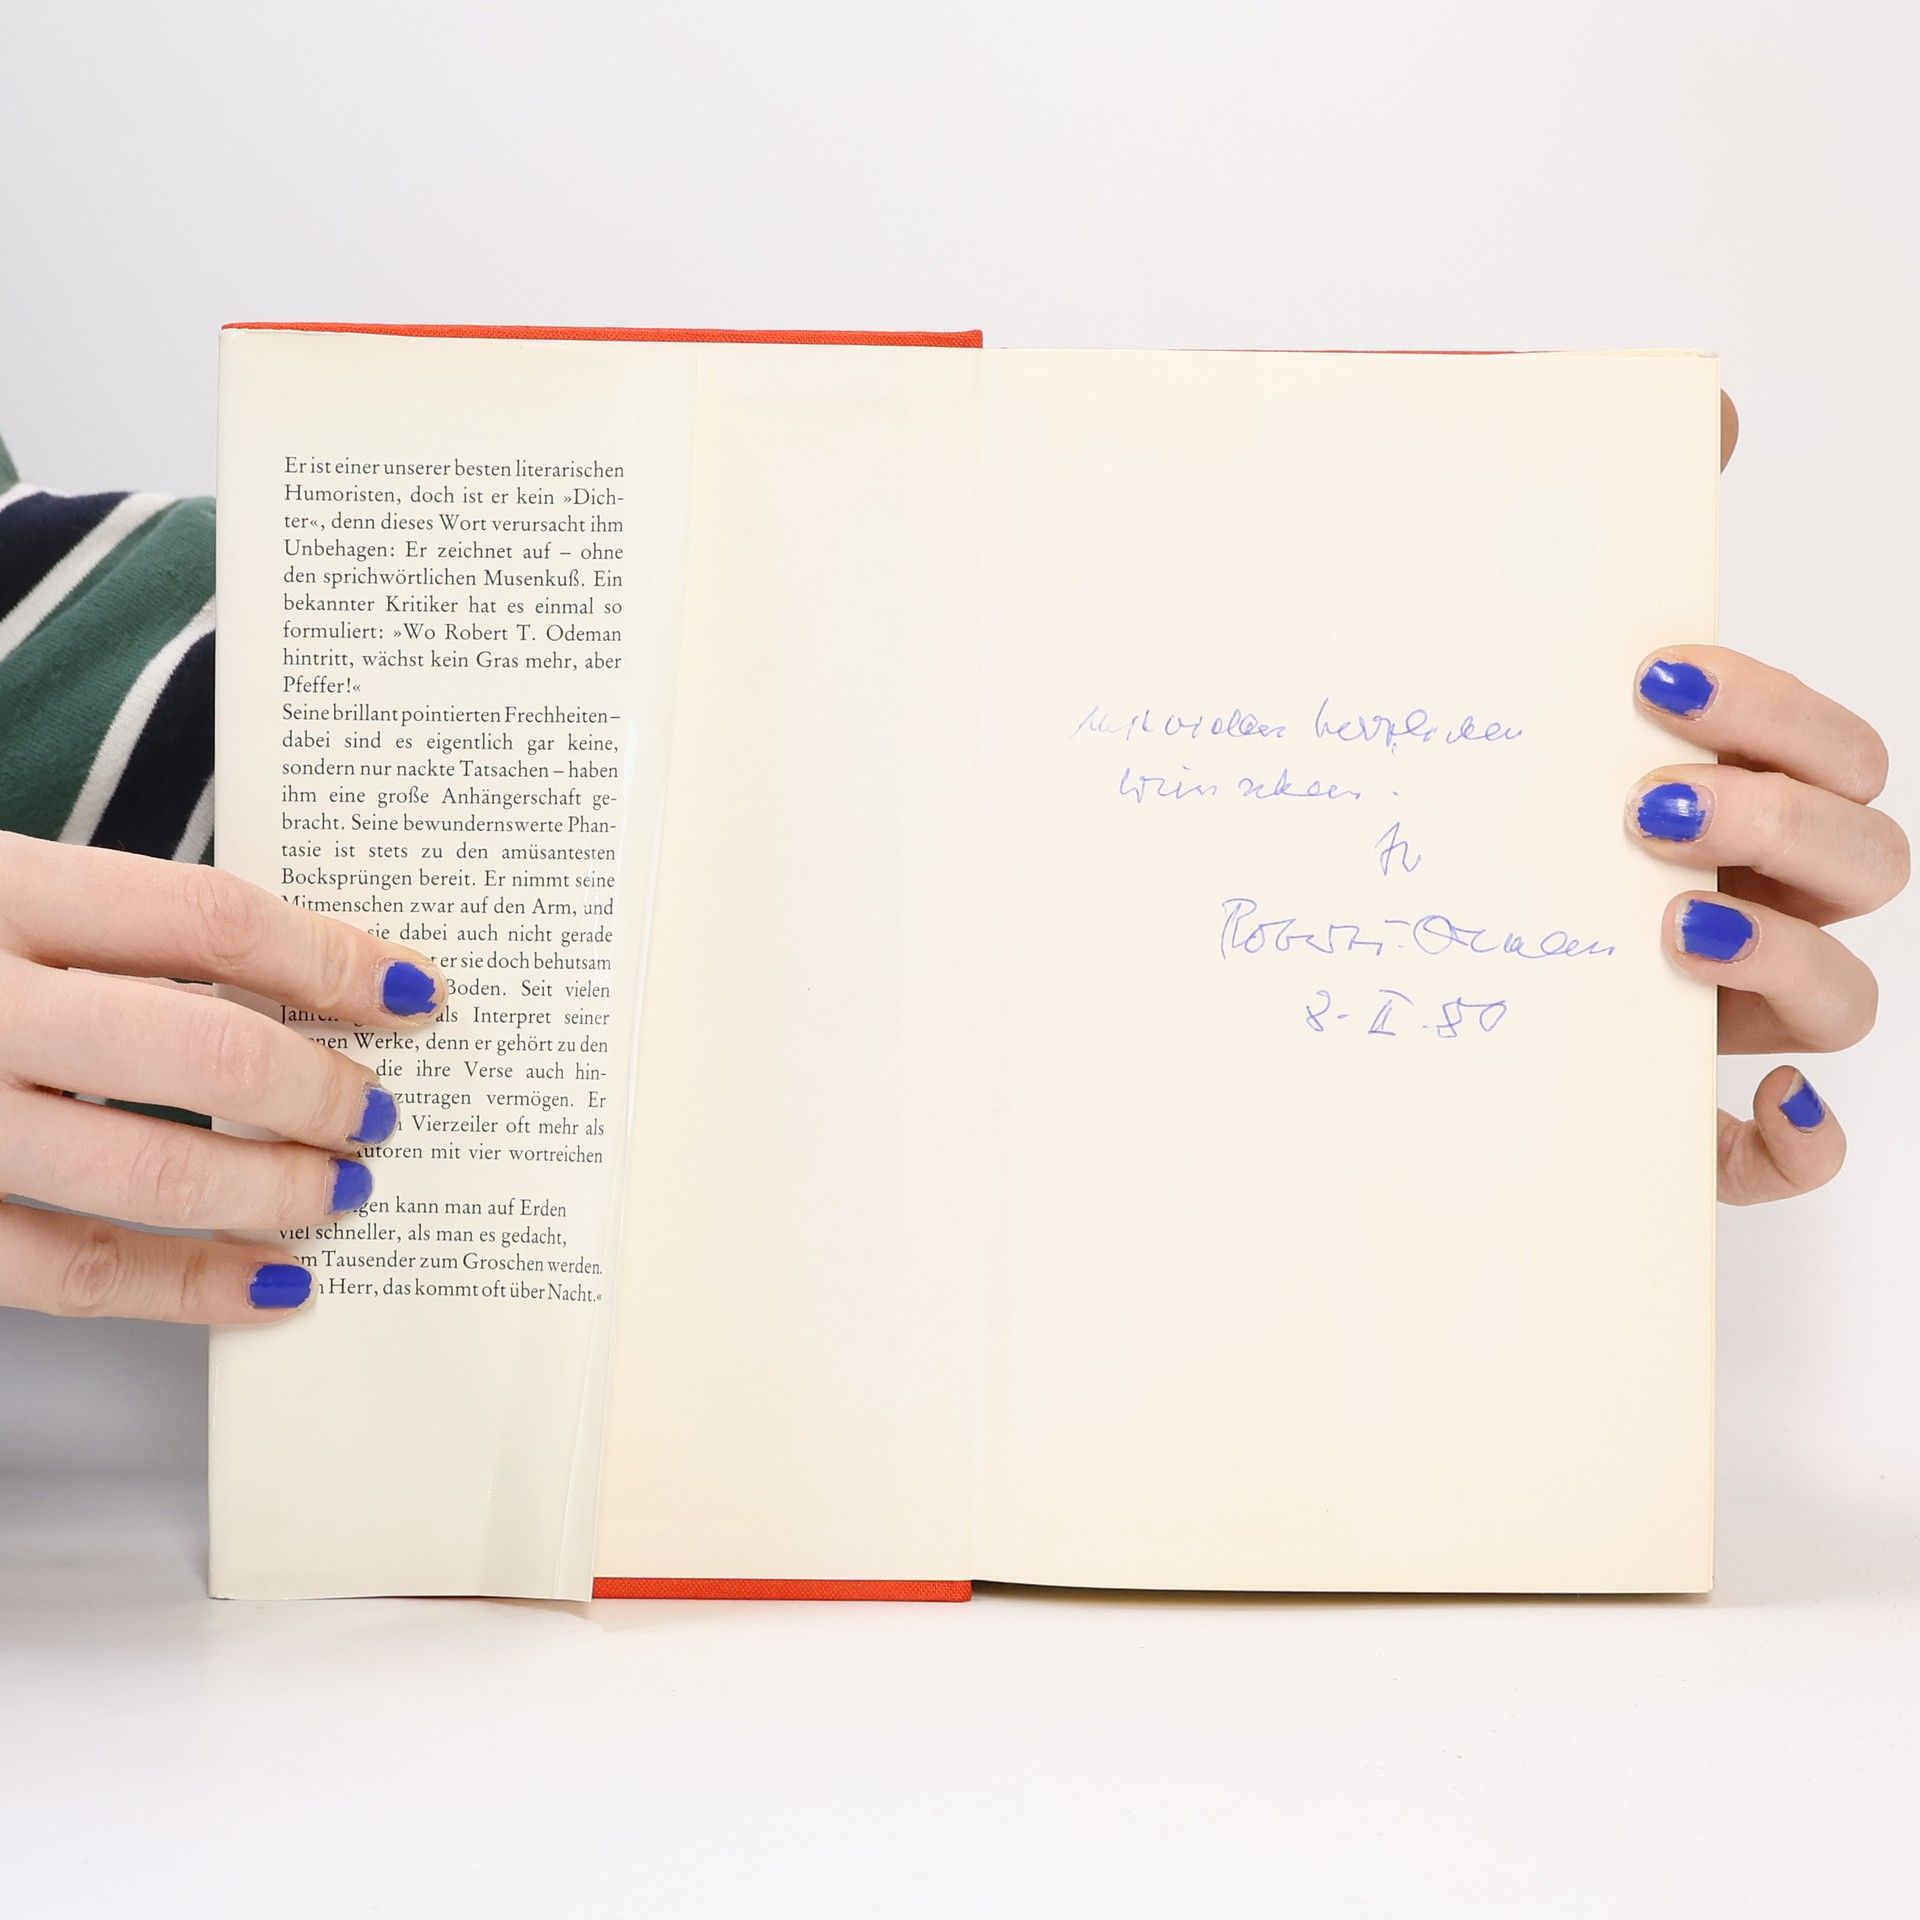 Er ist einer unserer besten literarischen
Humoristen, doch ist er kein »Dich-
ter«, denn dieses Wort verursacht ihm
Unbehagen: Er zeichnet auf – ohne
den sprichwörtlichen Musenkuß. Ein
bekannter Kritiker hat es einmal so
formuliert: »Wo Robert T. Odeman
hintritt, wächst kein Gras mehr, aber
Pfeffer!«
Seine brillant pointierten Frechheiten –
dabei sind es eigentlich gar keine,
sondern nur nackte Tatsachen – haben
ihm eine große Anhängerschaft ge-
bracht. Seine bewundernswerte Phan-
tasie ist stets zu den amüsantesten
Bocksprüngen bereit. Er nimmt seine
Mitmenschen zwar auf den Arm, und
sie dabei auch nicht gerade
er sie doch behutsam
Boden. Seit vielen
Jahren als Interpret seiner
Werke, denn er gehört zu den
die ihre Verse auch hin-
zutragen vermögen. Er
Vierzeiler oft mehr als
Autoren mit vier wortreichen
kann man auf Erden
viel schneller, als man es gedacht,
vom Tausender zum Groschen werden.
Herr, das kommt oft über Nacht.«
Mit vielen herzlichen
Wünschen.
Ihr
Robert T. Odeman
8. II. 80